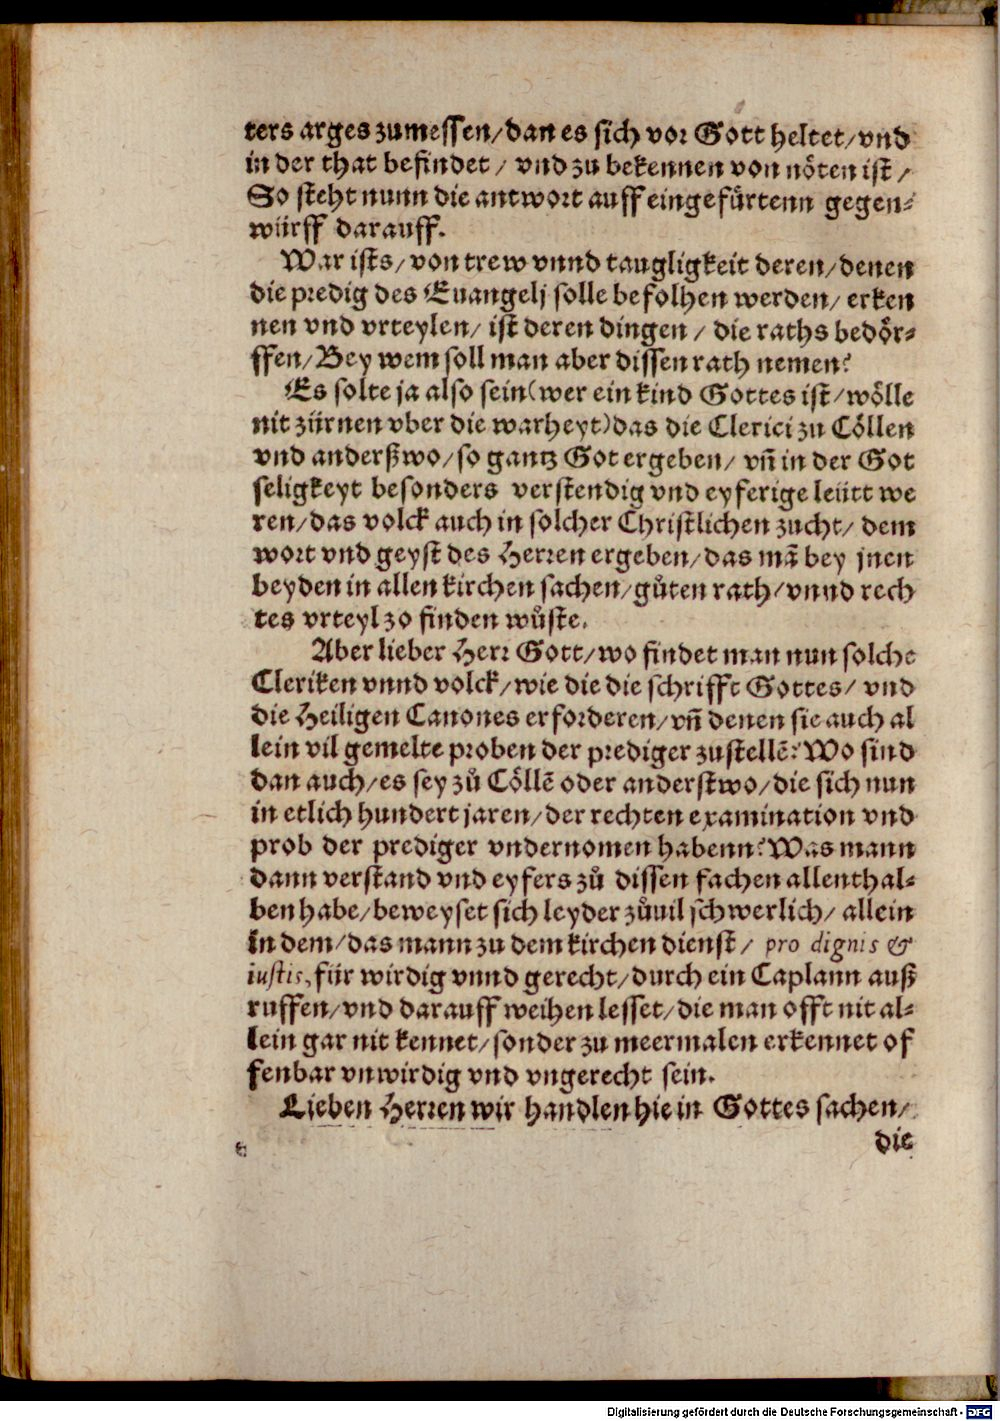 ters arges zumessen/dan es sich vor Gott heltet/vnd
in der that befindet / vnd zu bekennen von nöten ist /
So steht nunn die antwort auff eingefůrtenn gegen-
würff darauff.
War ists/von trew vnnd taugligkeit deren/denen
die predig des Euangelj solle befolhen werden/ erken
nen vnd vrteylen/ ist deren dingen / die raths bedör-
ffen/Bey wem soll man aber dissen rath nemen?
Es solte ja also sein(wer ein kind Gottes ist/wölle
nit zürnen vber die warheyt)das die Clerici zu Cöllen
vnd anderßwo/so gantz Got ergeben/ vñ in der Got
seligkeyt besonders verstendig vnd eyferige leütt we
ren/das volck auch in solcher Christlichen zucht/ dem
wort vnd geyst des Herren ergeben/das mā bey jnen
beyden in allen kirchen sachen/gůten rath/vnnd rech
tes vrteyl zo finden wůste.
Aber lieber Herr Gott/wo findet man nun solche
Cleriken vnnd volck/wie die die schrifft Gottes/ vnd
die Heiligen Canones erforderen/vñ denen sie auch al
lein vil gemelte proben der prediger zustellē? Wo sind
dan auch/es sey zů Cöllē oder anderstwo/die sich nun
in etlich hundert jaren/der rechten examination vnd
prob der prediger vndernomen habenn? Was mann
dann verstand vnd eyfers zů dissen fachen allenthal-
ben habe/beweyset sich leyder zůuil schwerlich/ allein
in dem/das mann zu dem kirchen dienst/ pro dignis &
iustis, für wirdig vnnd gerecht/durch ein Caplann auß
ruffen/vnd darauff weihen lesset/die man offt nit al-
lein gar nit kennet/sonder zu meermalen erkennet of
fenbar vnwirdig vnd vngerecht sein.
Lieben Herren wir handlen hie in Gottes sachen/
die
Digitalisierung gefördert durch die Deutsche Forschungsgemeinschaft - DFG